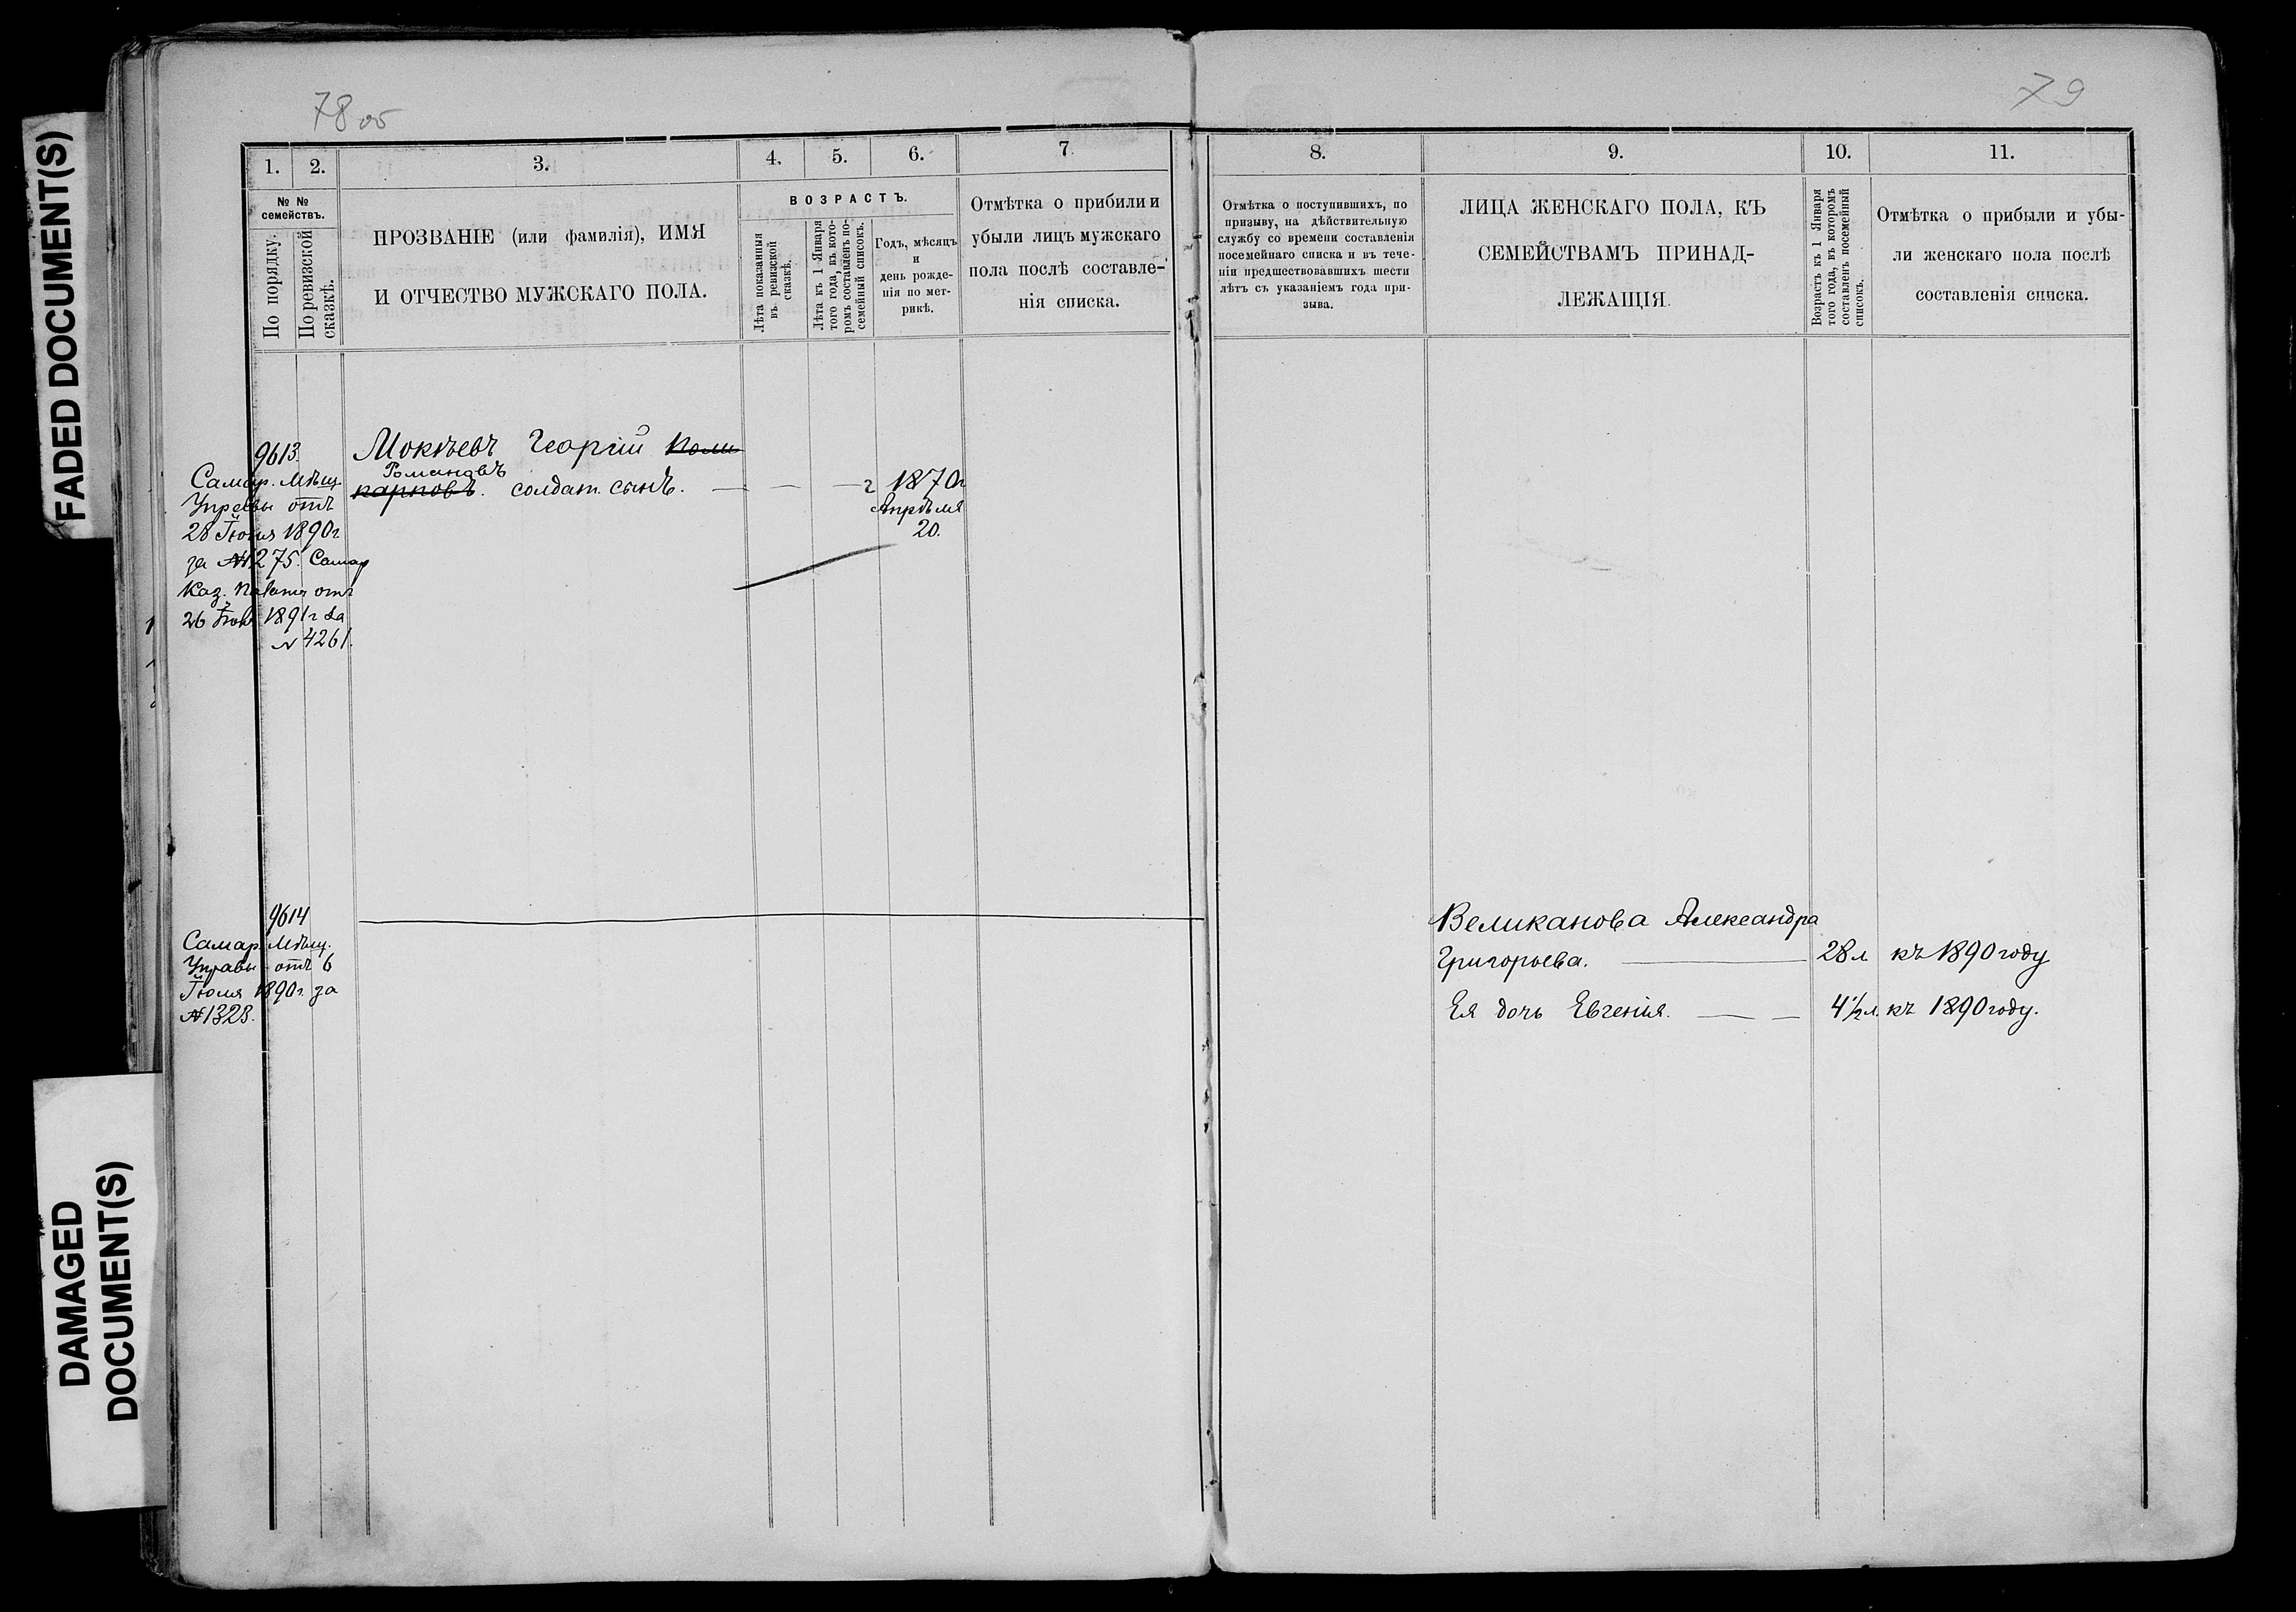 FADED DOCUMENT(S)
DAMAGED
DOCUMENT(S)
78 об
1.
2.
3.
4.
5.
6.
7.
№ №
семействъ.
По порядку.
По ревизской
сказкѣ.
ПРОЗВАНІЕ (или фамилія), ИМЯ
И ОТЧЕСТВО МУЖСКАГО ПОЛА.
ВОЗРАСТЪ.
Лѣта показанныя
въ ревизской
сказкѣ.
Лѣта къ 1 Января
того года, въ кото-
ромъ составленъ по-
семейный список.
Годъ, мѣсяцъ
и
день рожде-
нія по мет-
рикѣ.
Отмѣтка о прибыли и
убыли лицъ мужскаго
пола послѣ составле-
нія списка.
9613.
Самар. Мѣщ.
Управы отъ
28 Іюня 1890 г
за №1275. Самар
Каз. Палаты отъ
1891 г за
№ 4261.
Мокѣевъ Георгій Поли
Романовъ
карповъ. солдат. сынъ.
г 1870 г
Апрѣля
20.
9614
Самар. Мѣщ.
Управы отъ 6
Іюля 1890 г. за
№1328.
79
8.
9.
10.
11.
Отмѣтка о поступившихъ, по
призыву, на дѣйствительную
службу со времени составленія
посемейнаго списка и въ тече-
ніи предшествовавшихъ шести
лѣтъ съ указаніемъ года при-
зыва.
ЛИЦА ЖЕНСКАГО ПОЛА, КЪ
СЕМЕЙСТВАМЪ ПРИНАД-
ЛЕЖАЩІЯ.
Возрастъ къ 1 Января
того года, въ которомъ
составленъ посемейный
списокъ.
Отмѣтка о прибыли и убы-
ли женскаго пола послѣ
составленія списка.
Великанова Александра
Григорьева. 28 л къ 1890 году
Ея дочь Евгенія. 4½ л. къ 1890 году.